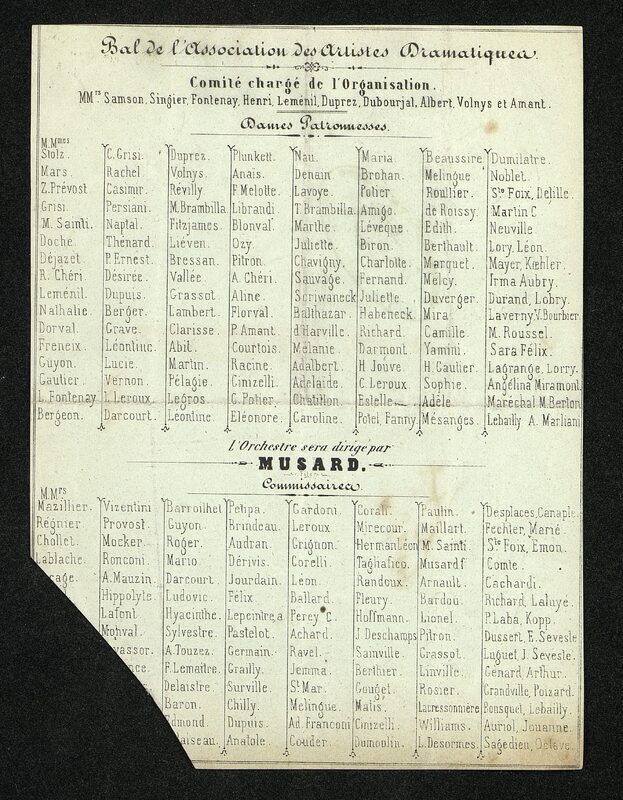 Bal de l'Association des Artistes Dramatiques.
Comité chargé de l'Organisation.
MM.rs Samson, Singier, Fontenay, Henri, Leménil, Duprez, Dubourjal, Albert, Volnys et Amant.
Dames Patronnesses.
M.Mmes
Stolz. C. Grisi. Duprez. Plunkett. Nau. Maria. Beaussire Dumilatre.
Mars. Rachel. Volnys. Anais. Denain Brohan. Melingue Noblet.
Z. Prévost Casimir. Révilly. F. Melotte. Lavoye. Potier. Roullier. Ste Foix, Delille.
Grisi. Persiani. M. Brambilla Librandi T. Brambilla. Amigo. de Roissy. Martin C
M. Sainti. Naptal. Fitzjames. Blonval. Marthe. Lévêque Edith. Neuville.
Doche Thénard. Liéven. Ozy. Juliette. Biron. Berthault. Lory, Léon.
Déjazet P. Ernest. Bressan. Pitron. Chavigny. Charlotte. Marquet. Mayer, Kœhler.
R. Chéri Désirée. Vallée. A. Chéri. Sauvage. Fernand. Mélcy. Irma Aubry.
Leménil. Dupuis. Grassot. Aline. Scriwaneck Juliette. Duverger. Durand, Lobry.
Nathalie. Berger. Lambert. Florval. Balthazar. Habeneck. Mira Laverny. V. Bourbier.
Dorval. Grave. Clarisse. P. Amant. d'Harville. Richard. Camille M. Roussel.
Freneix. Léontine. Abit. Courtois. Mélanie Darmont. Yamini. Sara Félix.
Guyon. Lucie. Martin. Racine. Adalbert. H. Jouve. H. Gautier. Lagrange, Lorry.
Gautier. Vernon. Pélagie. Cinizelli. Adelaide. C. Leroux. Sophie. Angélina Miramont
L. Fontenay L. Leroux. Legros. C. Potier. Chatillon Estelle. Adèle Maréchal M. Berton
Bergeon. Darcourt. Léontine. Eléonore. Caroline. Potel, Fanny. Mésanges. Lebailly A. Marliani
l'Orchestre sera dirigé par
MUSARD.
Commissaires.
M.Mrs
Mazillier. Vizentini Barroilhet Petipa. Gardoni. Corali. Paulin. Desplaces, Canaple
Régnier. Provost. Guyon. Brindeau. Leroux Mirecour. Maillart. Fechter, Marié.
Chollet. Mocker. Roger. Audran. Grignon. Herman Léon M. Sainti. Ste Foix, Emon.
Lablache. Ronconi. Mario. Dérivis. Corelli. Tagliafico. Musard f Comte.
A. Mauzin Darcourt. Jourdain. Léon. Randoux. Arnault. Cachardi.
Hippolyte. Ludovic. Félix. Ballard. Fleury. Bardou. Richard, Laluyé.
Lafont Hyacinthe. Lepeintre, a. Perey C. Hoffmann. Lionel P. Laba, Kopp.
Monval. Sylvestre. Pastelot. Achard. J. Deschamps Pitron. Dussert, E. Seveste
A. Touzez. Germain. Ravel. Sainville. Grassot. Luguet, J. Seveste.
F. Lemaître. Grailly. Jemma. Berthier. Linville. Génard Arthur.
Delaistre. Surville. St Mar. Gouget. Rosier. Grandville, Poizard.
Baron. Chilly. Melingue. Matis. Lacressonnière Bousquet, Lebailly.
Edmond. Dupuis. Ad. Franconi Cinizelli. Williams. Auriol, Jouanne.
Anatole. Couder. Dumoulin. L. Desormes. Sagedien, Octave.